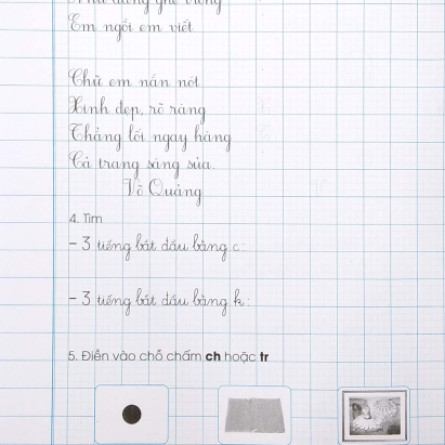 Em ngồi em viết
Chữ em nắn nót
Xinh đẹp, rõ ràng
Thẳng lối ngay hàng
Cả trang sáng sủa.
Võ Quảng
4. Tìm
- 3 tiếng bắt đầu bằng c:
- 3 tiếng bắt đầu bằng k:
5. Điền vào chỗ chấm ch hoặc tr